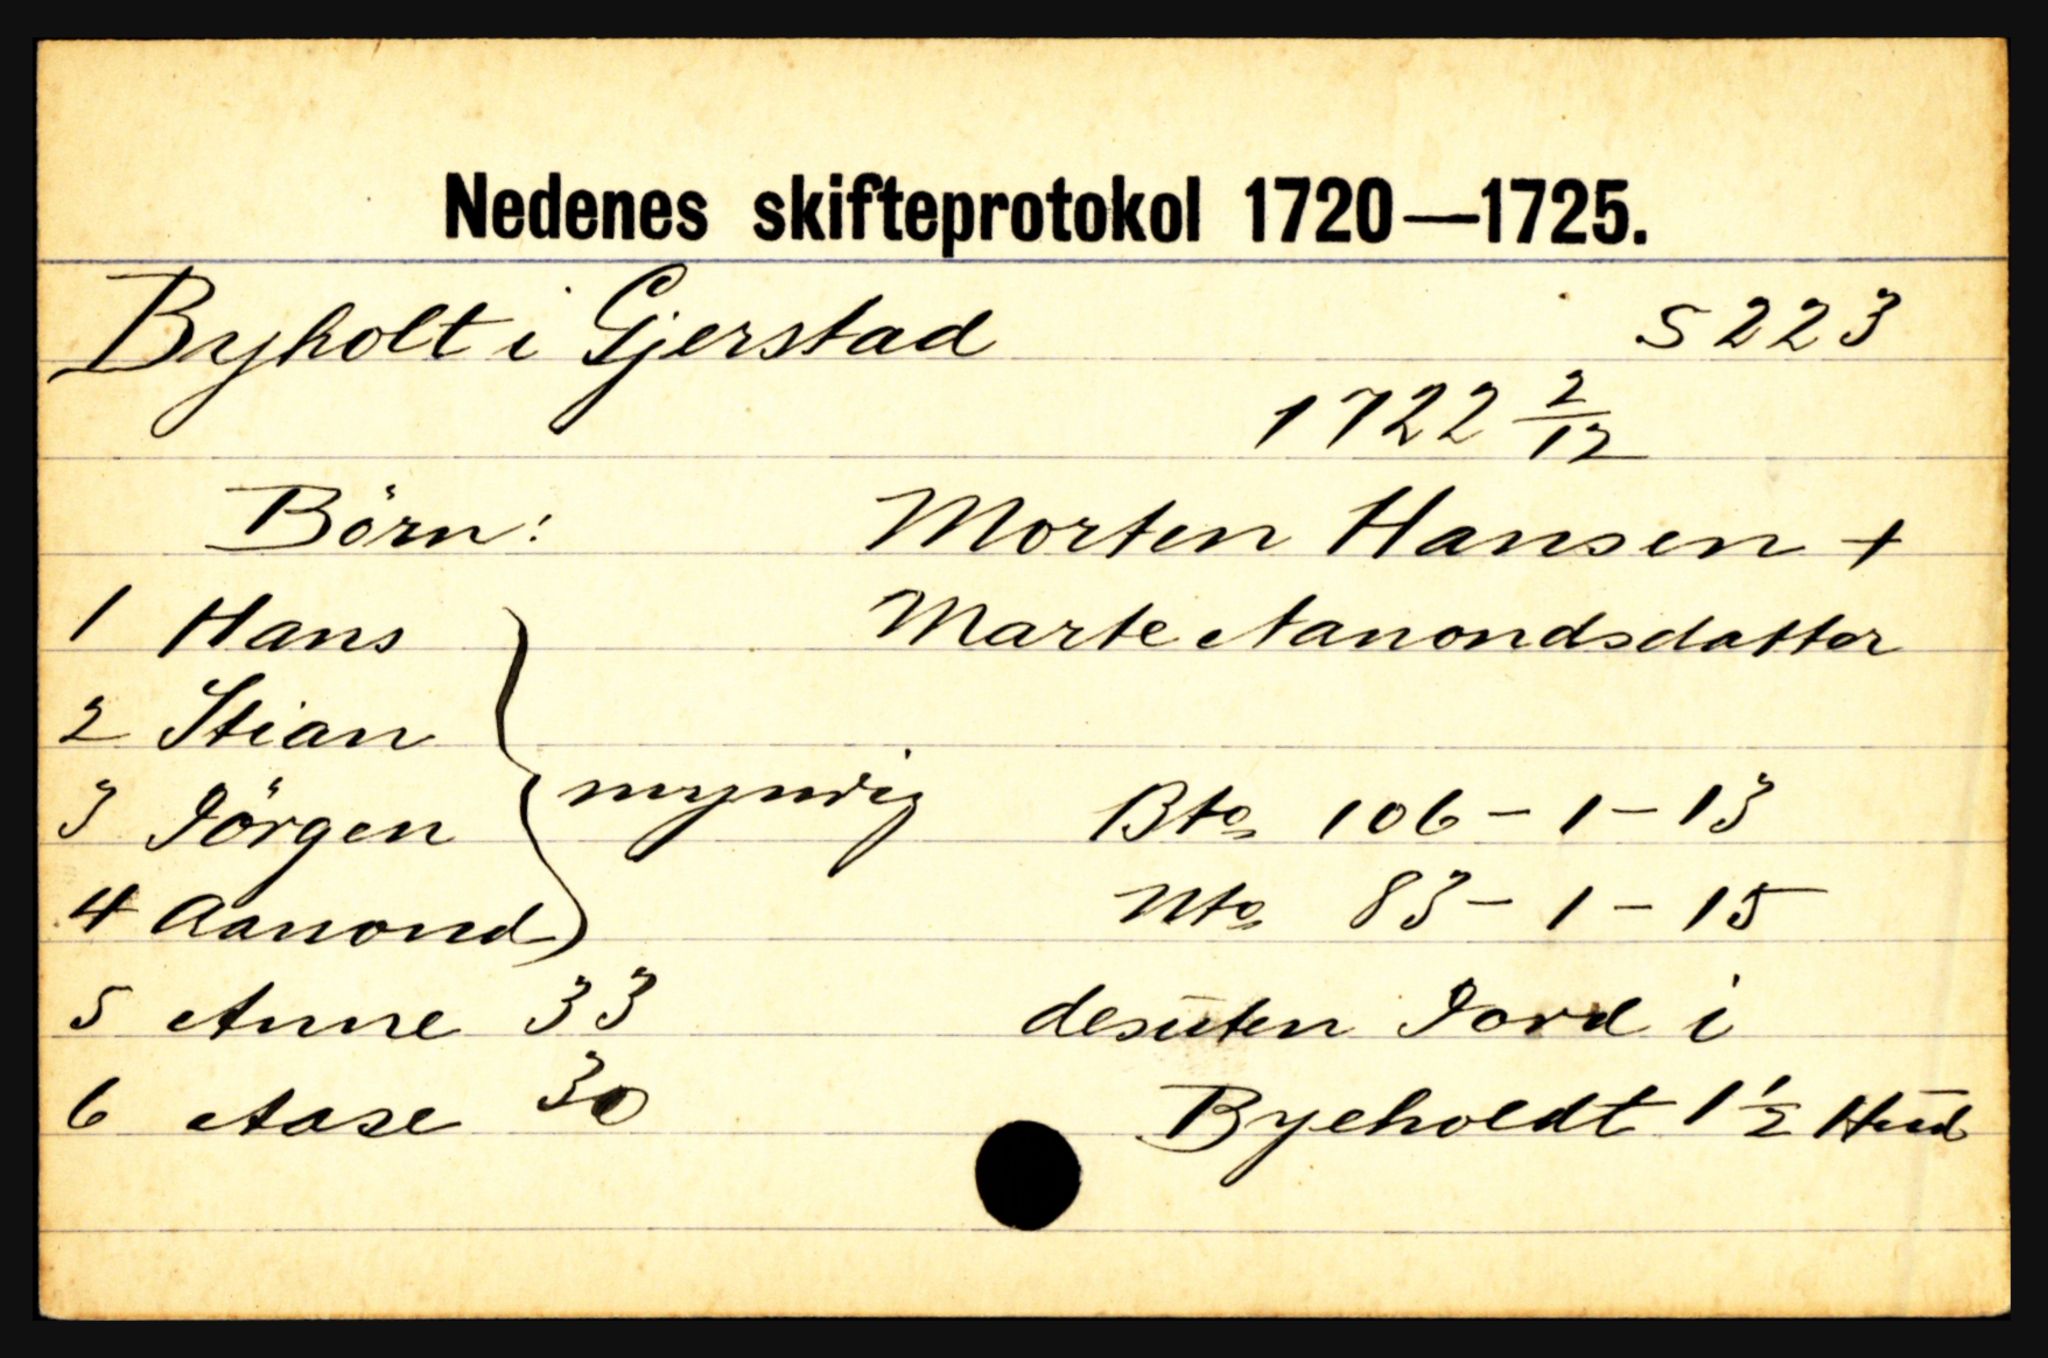 Nedenes skifteprotokol 1720—1725.
Byholt i Gjerstad S 223
1722 2/12
Börn: Morten Hansen +
1 Hans Marte Aanondsdatter
2 Stian
} myndig
3 Jörgen Bto 106 - 1 - 13
4 Aanond Nto 83 - 1 - 15
5 Anne 33 desuten Jord i
6 Aase 30 Byeholdt 1 1/2 Hud